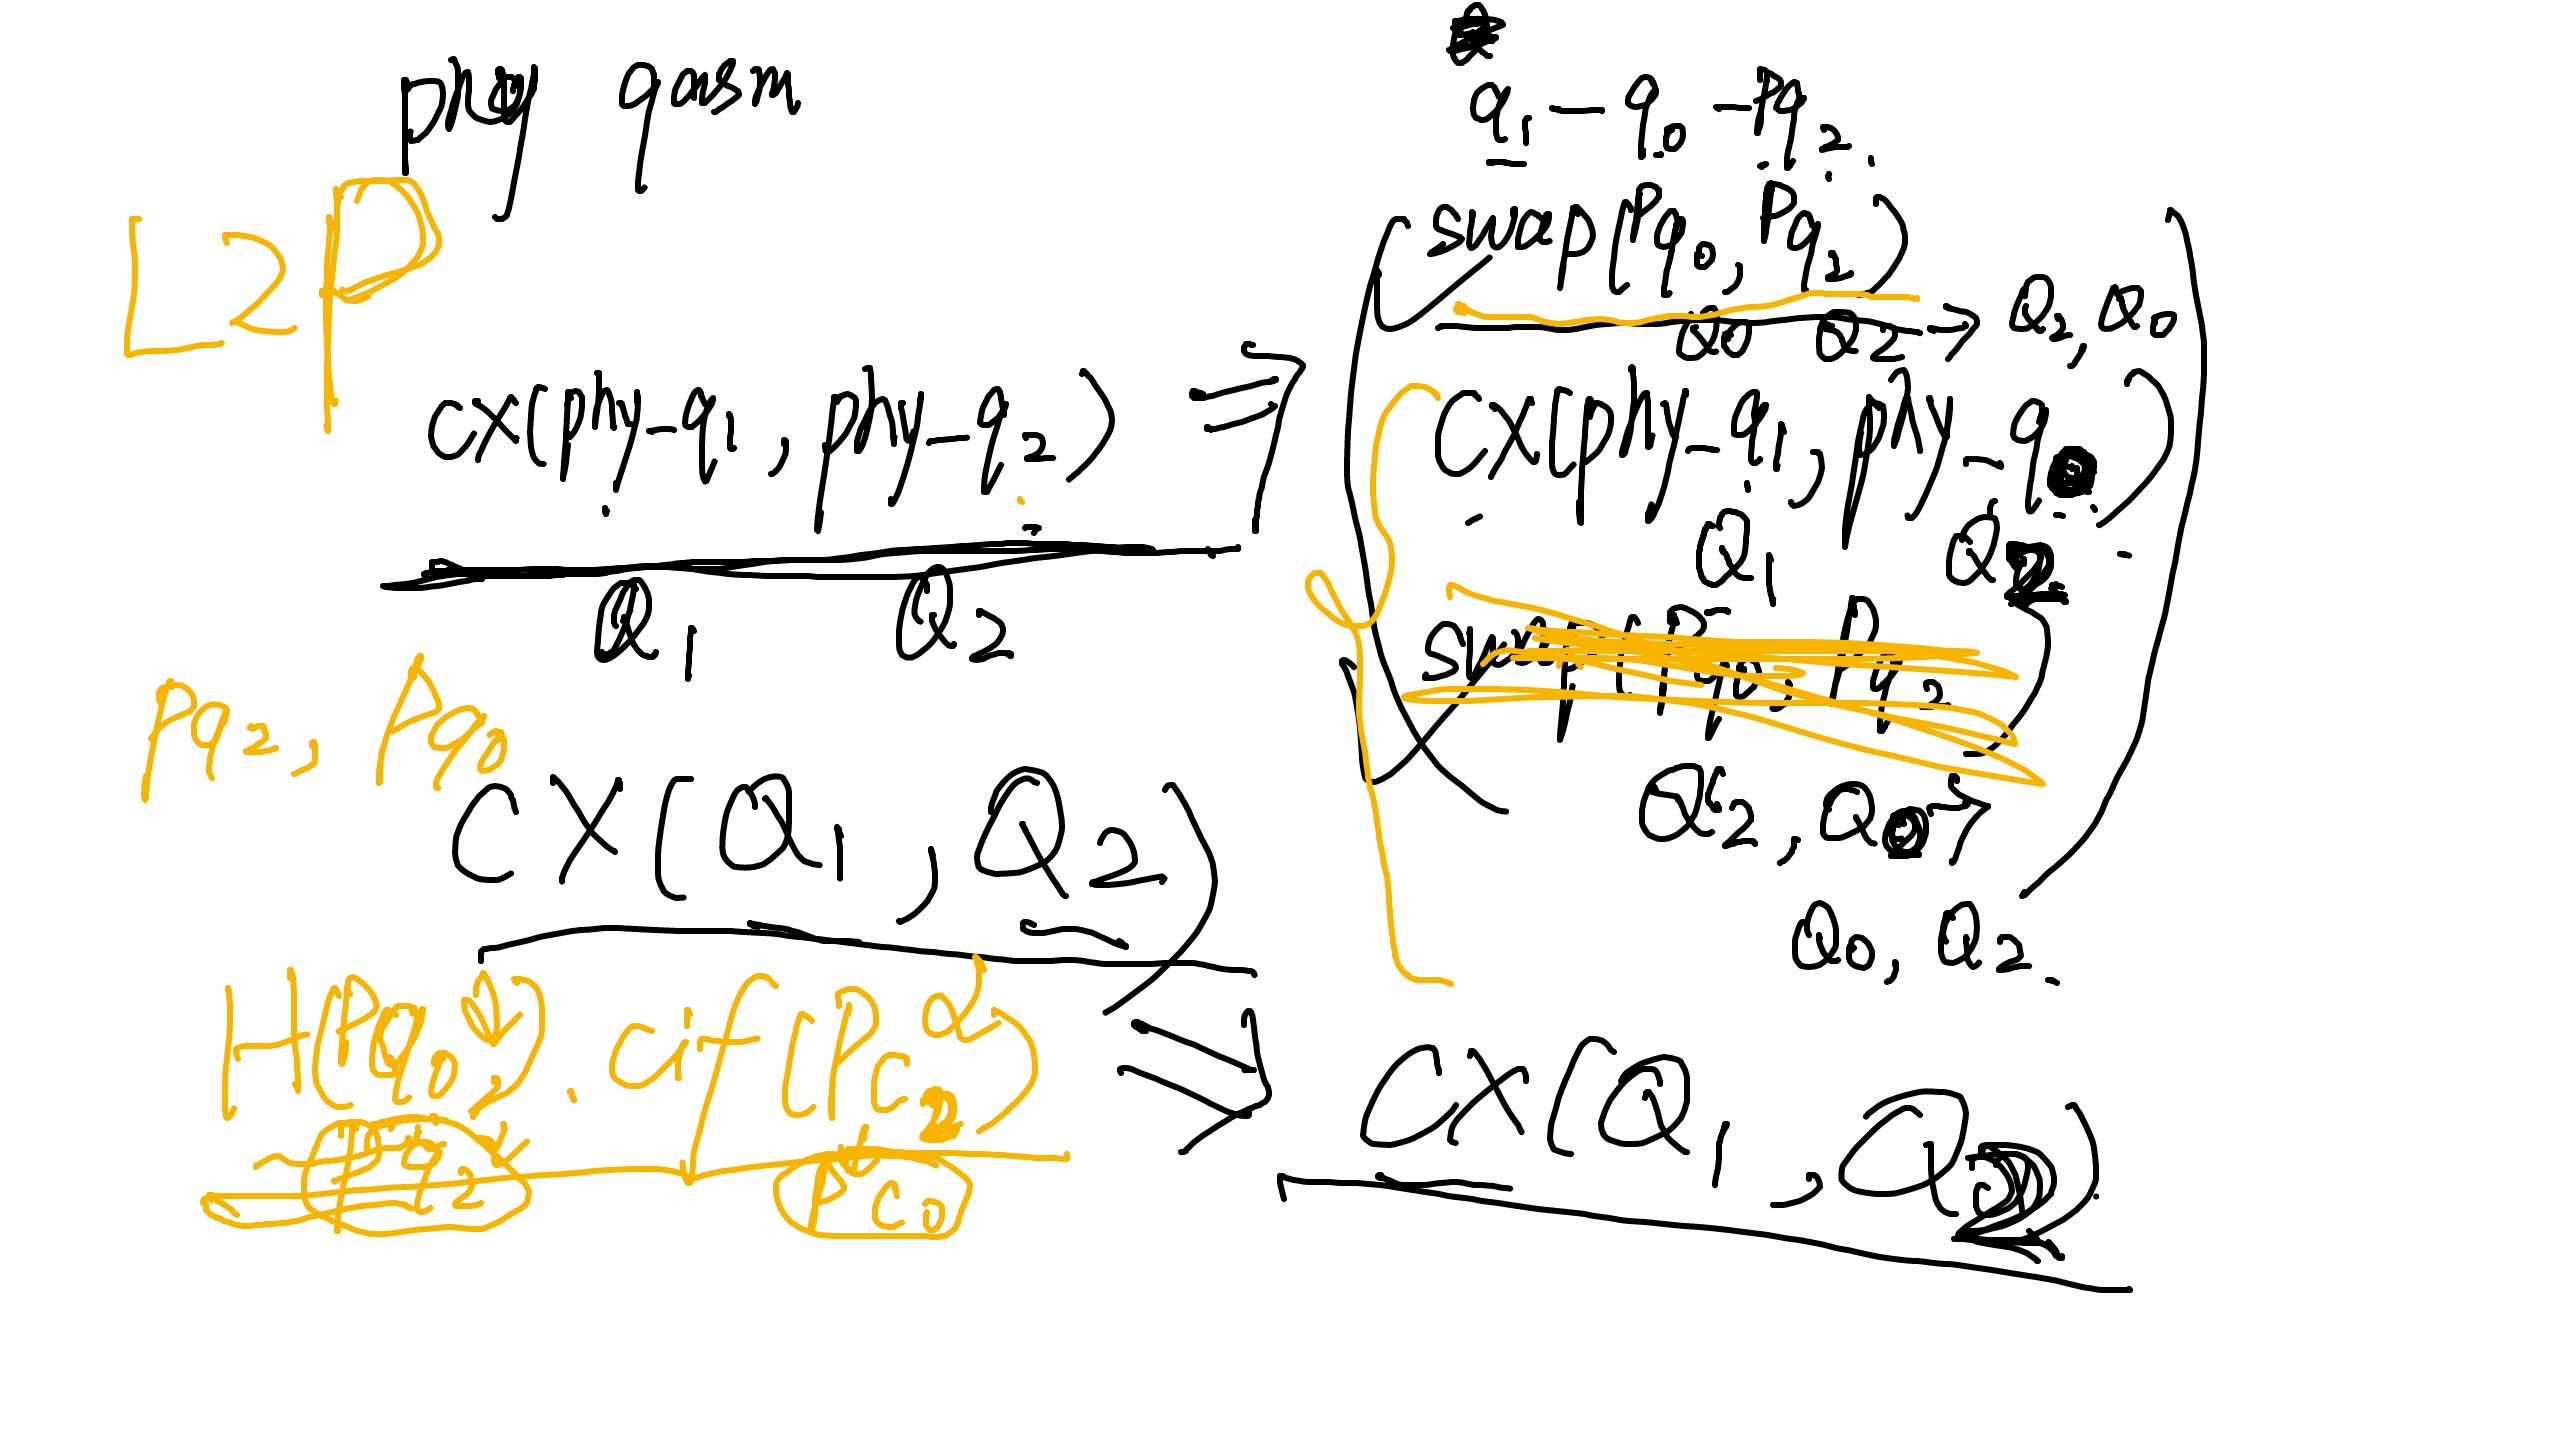 phy qasm
L2P
cx(phy-q1, phy-q2) ⇒
Q1 Q2
pq2, pq0
CX(Q1, Q2)
H(pq0).cif(pc2)
pq2 pc0
q1 - q0 - pq2
swap(pq0, pq2)
Q0 Q2 → Q2, Q0
CX(phy-q1, phy-q0)
Q1 Q2
swap(pq0, pq2)
Q2, Q0 →
Q0, Q2
⇒ CX(Q1, Q2)